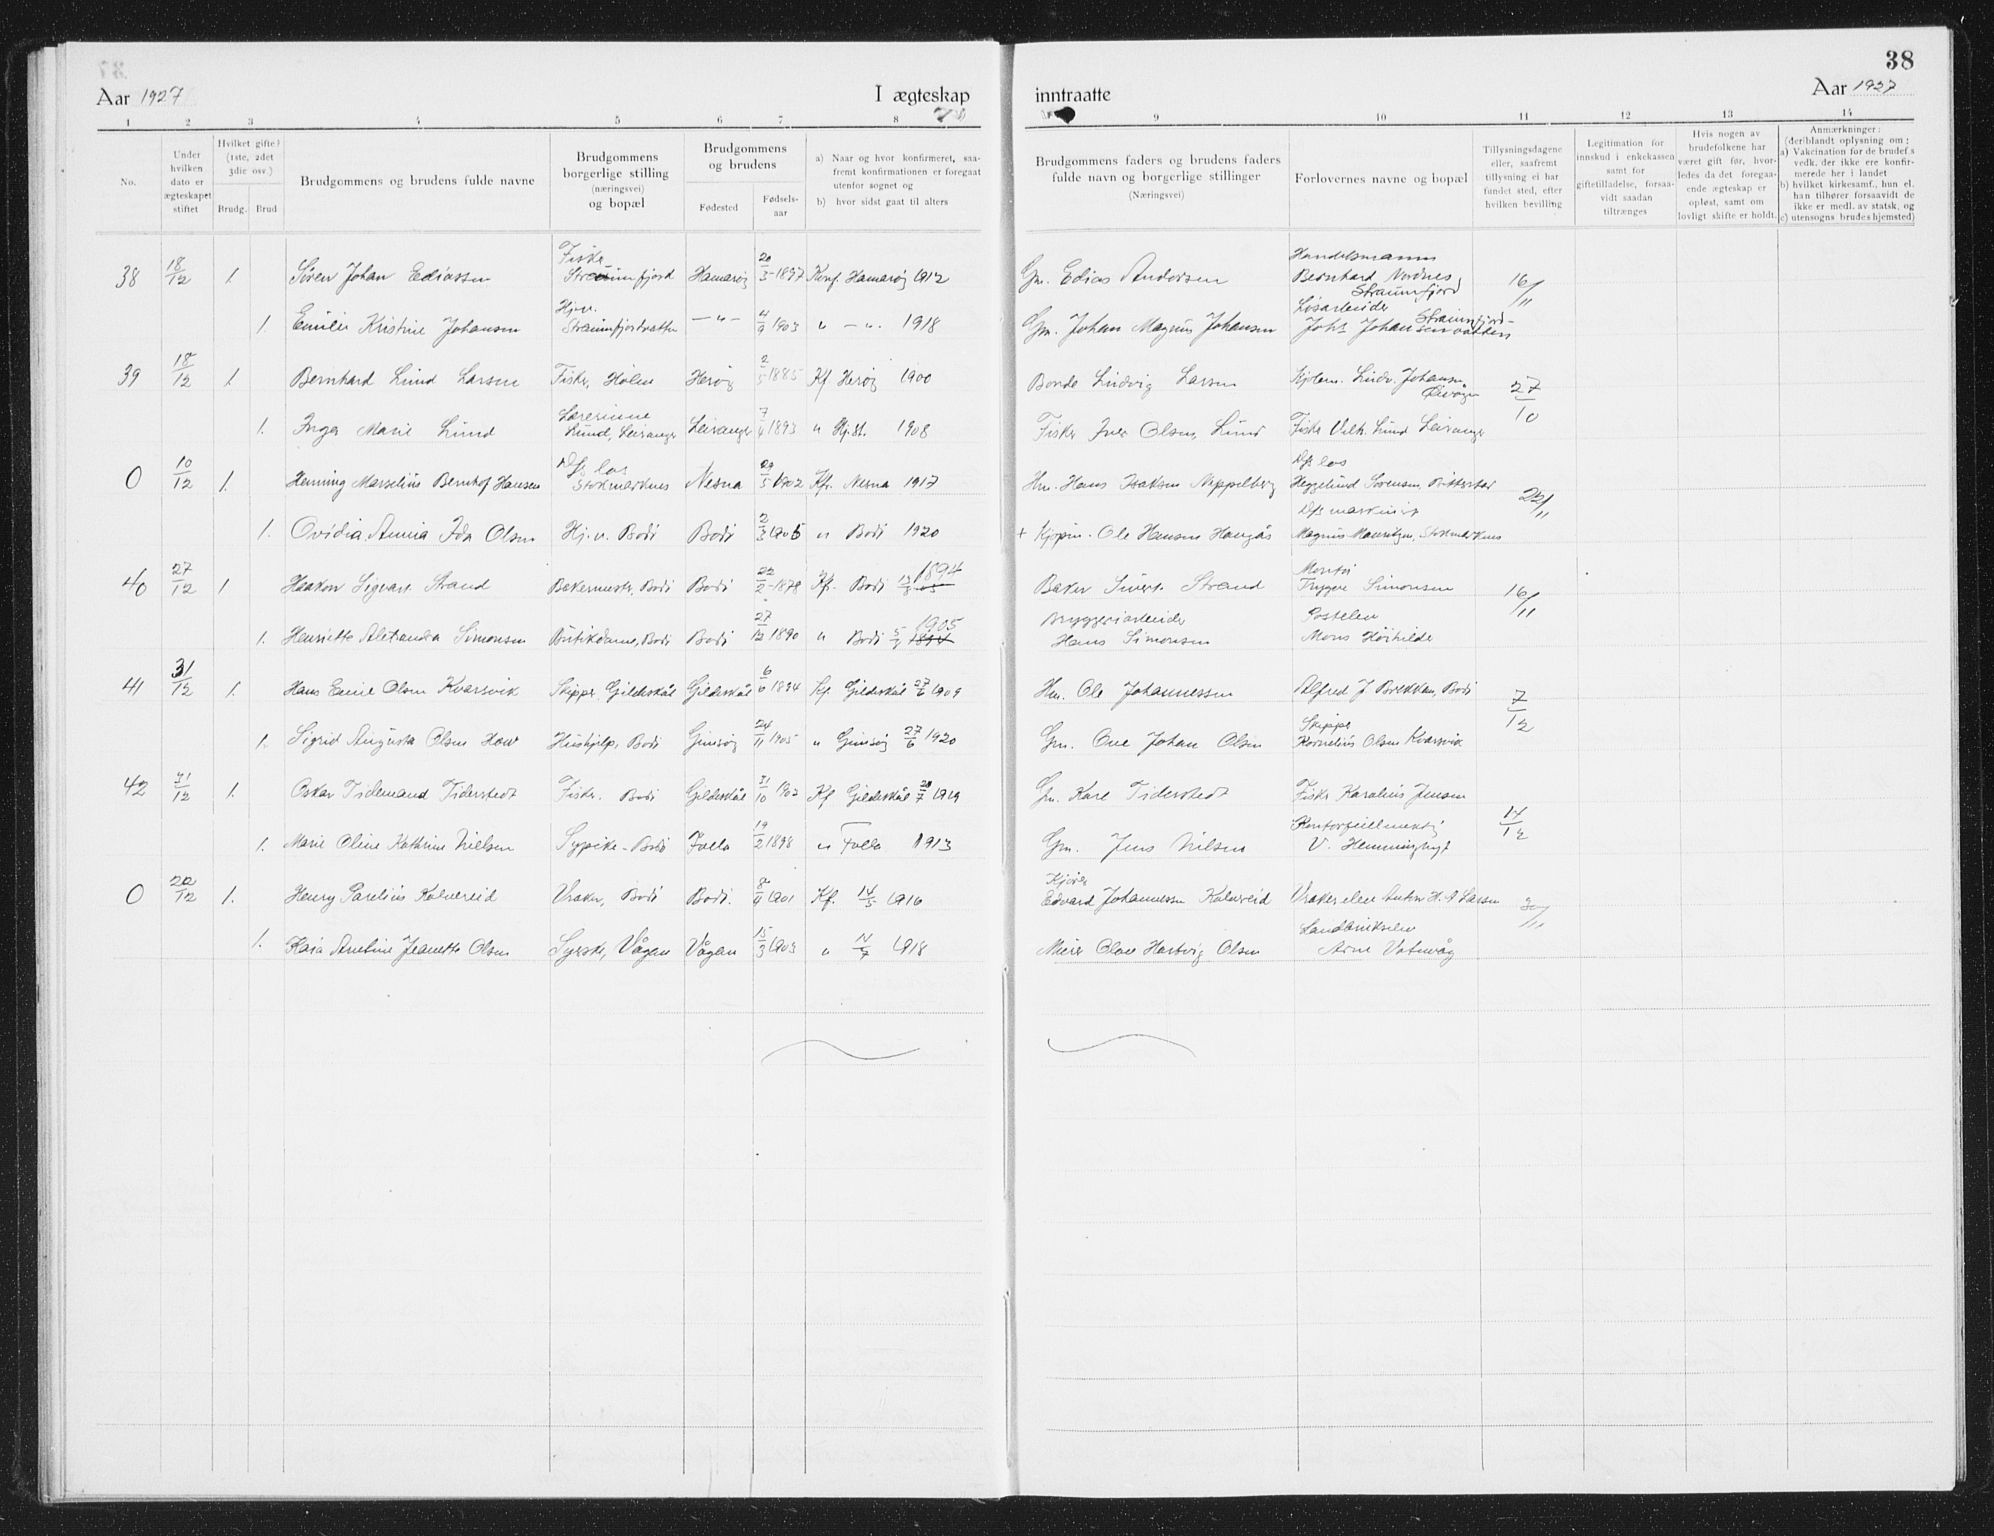 38
Aar 1927
I ægteskap
inntraatte
Aar 1927
1 2 3 4 5 6 7 8 9 10 11 12 13 14
No.
Under hvilken dato er ægteskapet stiftet
Hvilket gifte? (1ste, 2det 3die osv.)
Brudg. Brud
Brudgommens og brudens fulde navne
Brudgommens borgerlige stilling (næringsvei) og bopæl
Brudgommens og brudens
Fødested
Fødsels-aar
a) Naar og hvor konfirmeret, saa-
fremt konfirmationen er foregaat
utenfor sognet og
b) hvor sidst gaat til alters
Brudgommens faders og brudens faders
fulde navn og borgerlige stillinger
(Næringsvei)
Forlovernes navne og bopæl
Tillysningsdagene
eller, saafremt
tillysning ei har
fundet sted, efter
hvilken bevilling
Legitimation for
innskud i enkekassen
samt for
giftetilladelse, forsaa-
vidt saadan
tiltrænges
Hvis nogen av
brudefolkene har
været gift før, hvor-
ledes da det foregaa-
ende ægteskap er
opløst, samt om
lovligt skifte er holdt.
Anmærkninger:
(deriblandt oplysning om:
a) Vakcination for de brudef.s
vedk. der ikke ere konfir-
merede her i landet
b) hvilket kirkesamf., hun el.
han tilhører forsaavidt de
ikke er medl. av statsk, og
c) utensogns brudes hjemsted)
38 18/12 1. Søren Johan Ediassen Fisker Straumfjord Hamarøy 20/3-1897 Konf. Hamarøy 1912 Gm. Edias Andersen Handelsmann Bernhard Nordnes Straumfjord 16/11
1. Emilie Kristine Johansen Hj.v. Straumfjordvatten -"- 4/9 1903 " -". 1918 Gm. Johan Magnus Johansen Løsarbeider Johs Johansen Straumfjord-vatten
39 18/12 1. Bernhard Lund Larsen Fisker, Holen Herøy 2/5 1885 Kf Herøy 1900 Bonde Ludvig Larsen Ludv. Johansen 27/10
1. Inga Marie Lund Lærerinne Lund, Leiranger Leiranger 7/4 1893 " Hj.st. 1908 Fisker Iver Olsen, Lund Fisker Vilh. Lund Leiranger
0 10/12 1. Henning Marselius Bernhof Hansen D/s los Stokmarknes Nesna 29/5 1902 Kfr. Nesna 1917 Hm. Hans Isaksen Nippelberg D/s los Heggelund Sørensen, 22/11
1. Ovidia Annia Ida Olsen Hj.v. Bodø Bodø 2/3 1905 " Bodø 1920 + Kjøpm. Ole Hansen Haugås D/s maskinist Magnus Mauritzen, Stokmarknes
40 27/12 1. Haakon Sigvart Strand Bakermester, Bodø Bodø 22/2-1878 Kfr. Bodø 1894 Baker Sivert Strand Montør Trygve Simonsen 16/11
1. Henriette Alexandra Simonsen Butikdame, Bodø Bodø 27/12 1890 " Bodø 1905 1894 Bryggeriarbeider Hans Simonsen Postelev Mons Høihilder
41 31/12 1. Hans Emil Olsen Kvarsvik Skipper Gildeskål Gildeskål 6/6 1894 Kf Gildeskål 27/6 1909 Hm. Ole Johannessen Alfred J Brekkan, Bodø 7/12
1. Sigrid Augusta Olsen Hov Hushjelp, Bodø Gimsøy 24/11 1905 " Gimsøy 27/6 1920 Gm. Ove Johan Olsen Skipper Kornelius Olsen Kvarsvik
42 31/12 1. Oskar Tidemand Tiderstedt Fisker. Bodø Gildeskål 31/10 1902 Kf Gildeskål 20/7 1919 Gm. Kare Tiderstedt Fisker Karolius Jensen 14/12
1. Marie Oline Kathrine Nielsen Sypike - Bodø Folla 19/2 1898 " Folla 1913 Gm. Jens Nilsen Kontorfullmektig V. Hemminghyt
0 20/12 1. Henry Parelius Kalvereid Vraker, Bodø Bodø. 8/9 1901 Kf. 14/5 1916 Kjører Edvard Johannessen Kalvereid Vrakerelev Anton H. A Larsen 30/11
1. Kaia Anetine Jeanette Olsen Syerske, Vågan Vågan 15/3 1903 " 14/7 1918 Murer Olav Hartvig Olsen Landbrukselev Arne Vatnvåg